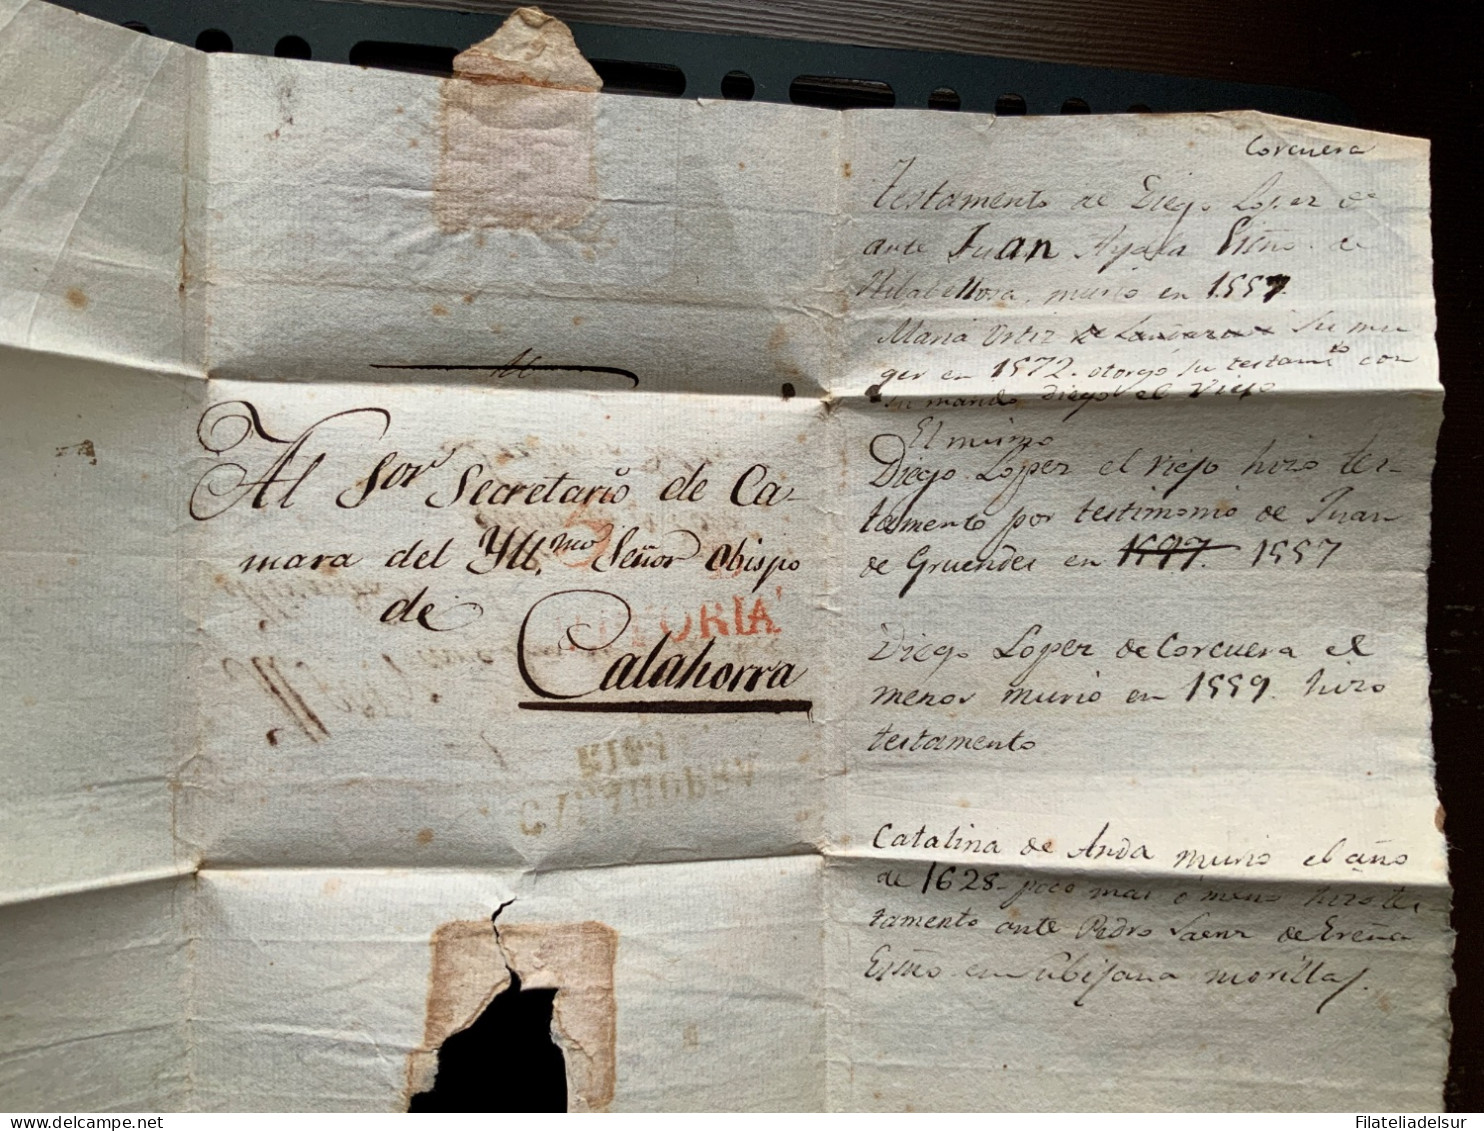 Al Sor. Secretario de Ca-
mara del Yll.mo Señor Obispo
de
Calahorra
VITORIA
RIOJA
CALAHORRA
Corcuera
Testamento de Diego Lopez de
ante Juan Ayala Essno. de
murio en 1557
Maria Ortiz de su mu
ger en 1572. otorgó su testamto con
su marido Diego el Viejo
El mismo
Diego Lopez el viejo hizo tes-
tamento por testimonio de Juan
de Gruendes en 1597. 1557
Diego Lopez de Corcuera el
menor murio en 1559. hizo
testamento
Catalina de Anda murio el año
de 1628 - poco mas ó meno hizo tes-
tamento ante Pedro Saenz de Ereña
Essno en Ubijana morillas.
Filateliadelsur